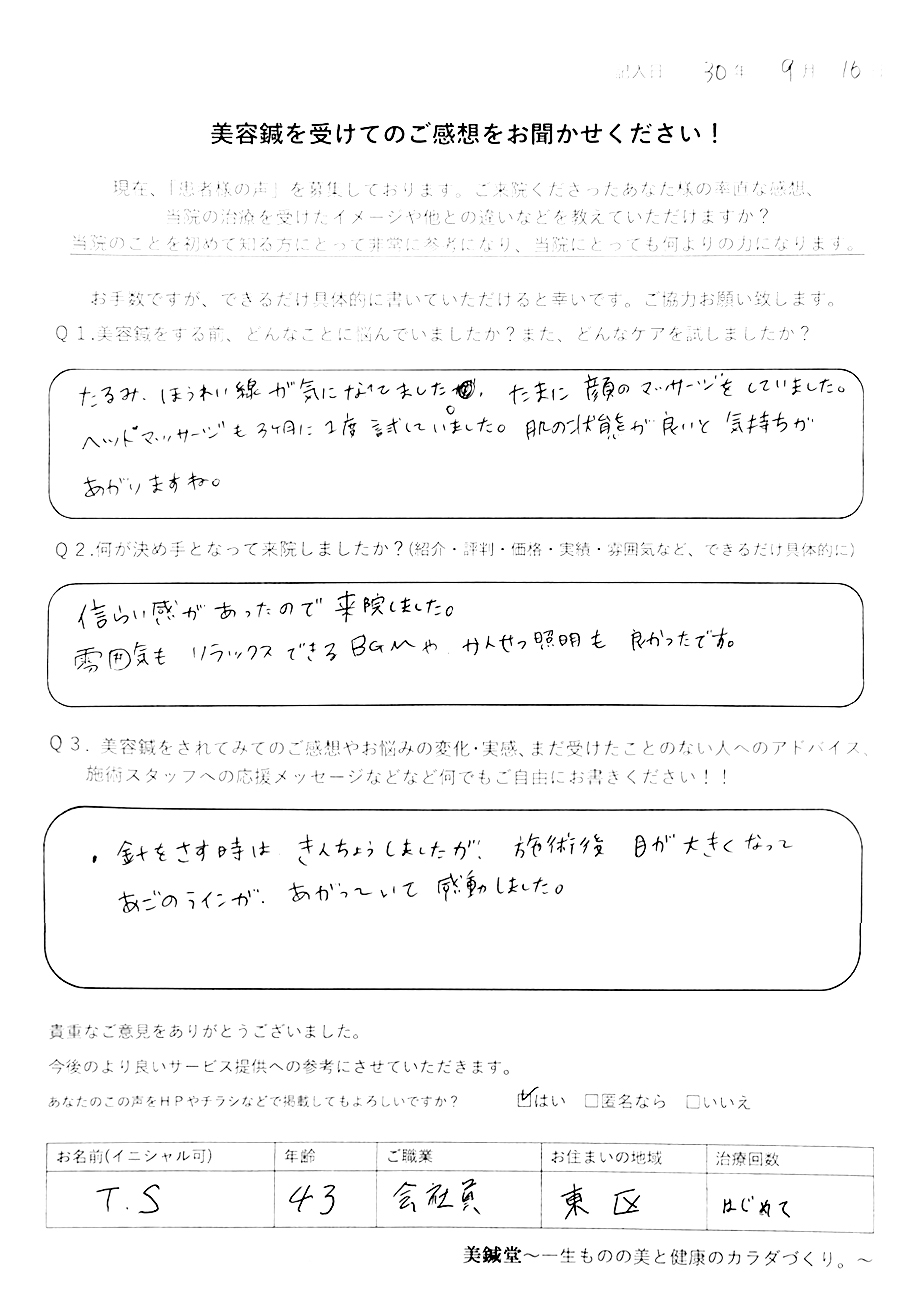 記入日 30年 9月 16日
美容鍼を受けてのご感想をお聞かせください！
現在、「患者様の声」を募集しております。ご来院くださったあなた様の率直な感想、
当院の治療を受けたイメージや他との違いなどを教えていただけますか？
当院のことを初めて知る方にとって非常に参考になり、当院にとっても何よりの力になります。
お手数ですが、できるだけ具体的に書いていただけると幸いです。ご協力お願い致します。
Ｑ１.美容鍼をする前、どんなことに悩んでいましたか？また、どんなケアを試しましたか？
たるみ、ほうれい線が気になてました。たまに顔のマッサージをしていました。
ヘッドマッサージも3ヶ月に1度試していました。肌の状態が良いと気持ちが
あがりますね。
Ｑ２.何が決め手となって来院しましたか？(紹介・評判・価格・実績・雰囲気など、できるだけ具体的に)
信らい感があったので来院しました。
雰囲気もリラックスできるBGMや、かんせつ照明も良かったです。
Ｑ３．美容鍼をされてみてのご感想やお悩みの変化・実感、まだ受けたことのない人へのアドバイス、
施術スタッフへの応援メッセージなどなど何でもご自由にお書きください！！
・針をさす時は、きんちょうしましたが、施術後 目が大きくなって
あごのラインが、あがっていて感動しました。
貴重なご意見をありがとうございました。
今後のより良いサービス提供への参考にさせていただきます。
あなたのこの声をＨＰやチラシなどで掲載してもよろしいですか？ ☑はい □匿名なら □いいえ
お名前(イニシャル可) 年齢 ご職業 お住まいの地域 治療回数
T.S 43 会社員 東区 はじめて
美鍼堂～一生ものの美と健康のカラダづくり。～